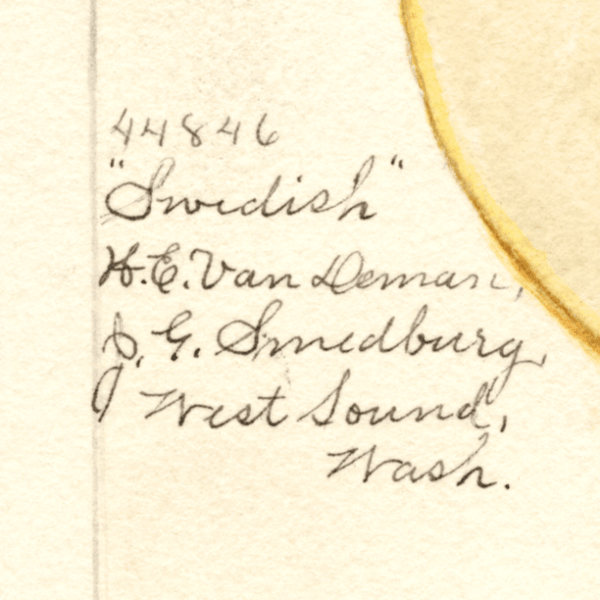 44846
"Swedish"
H.E. Van Deman,
J. G. Smedburg,
West Sound,
Wash.